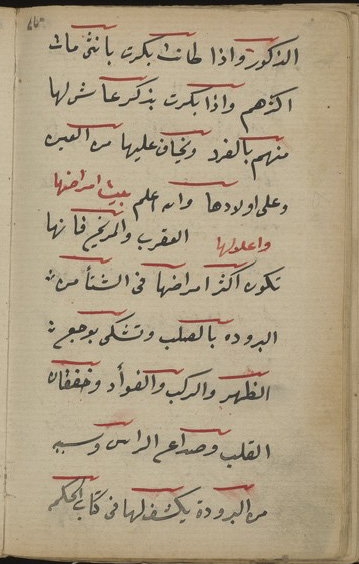 الذكور واذا كانت بكرت بانثى مات
اكثرهم واذا بكرت بذكر عاش لها
منهم بالفرد ويخاف عليها من الغيره
وعلى اولادها والله اعلم بيت امراضها
واعلالها العقرب والمريخ فانها
تكون اكثر امراضها فى الشتأ من
البروده بالصلب وتشكى بوجع
الظهر والركب والفوأد وخفقان
القلب وصداع الراس وسببه
من البرودة يكشف لها فى كتاب الحكم